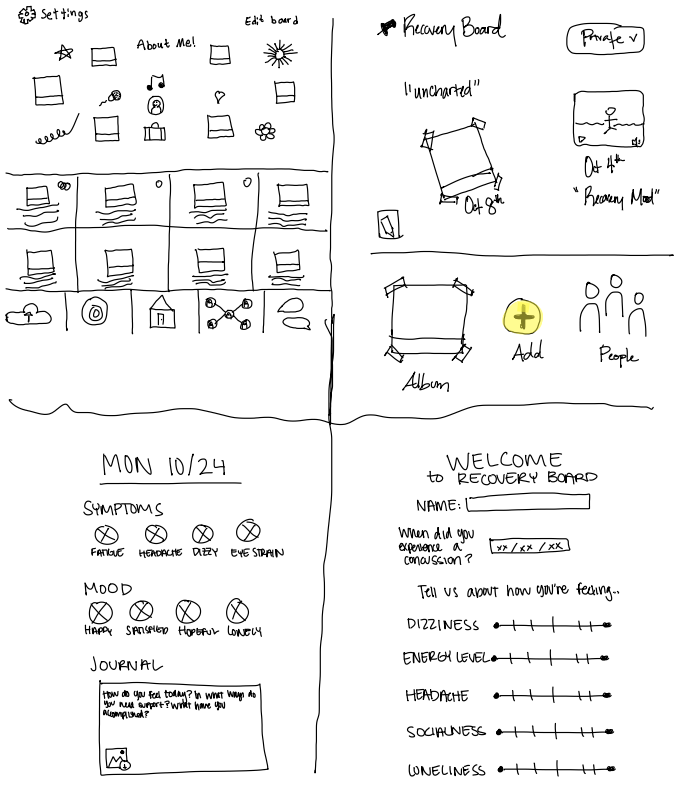 Settings
Edit board
About Me!
Recovery Board
Private
"uncharted"
Oct 8th
Oct 4th
"Recovery Mood"
Album
Add
People
MON 10/24
SYMPTOMS
FATIGUE HEADACHE DIZZY EYE STRAIN
MOOD
HAPPY SATISFIED HOPEFUL LONELY
JOURNAL
How do you feel today? In what ways do
you need support? What have you
accomplished?
WELCOME
to RECOVERY BOARD
NAME:
When did you
experience a
concussion?
xx/xx/xx
Tell us about how you're feeling...
DIZZINESS
ENERGY LEVEL
HEADACHE
SOCIALNESS
LONELINESS